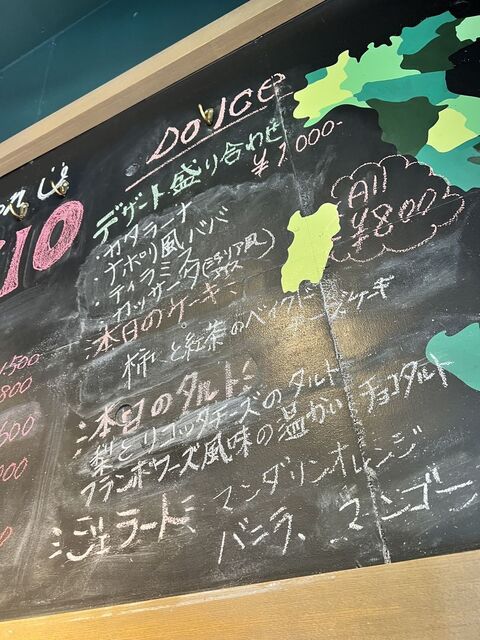 DOLCE
デザート盛り合わせ
¥1,000-
All
¥800
・カタラーナ
・ナポリ風ババ
・ティラミス
・カッサータ(シチリア風アイス)
本日のケーキ
柿と紅茶のベイクド
チーズケーキ
本日のタルト
梨とリコッタチーズのタルト
フランボワーズ風味の温かいチョコタルト
ジェラート マンダリンオレンジ
バニラ、マンゴー
10
1500
800